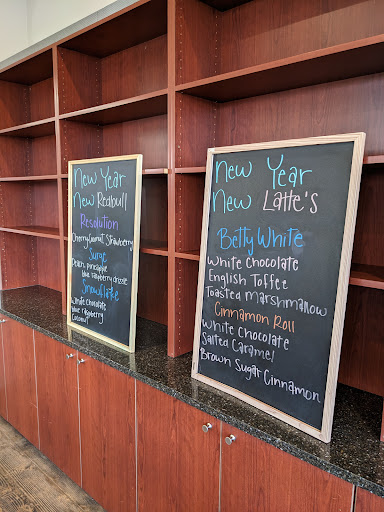 New Year
New Redbull
Resolution
Cherry, Coconut, Strawberry
Surge
Peach, pineapple
blue raspberry drizzle
Snowflake
White Chocolate
blue raspberry
Coconut
New Year
New Latte's
Betty White
White Chocolate
English Toffee
Toasted Marshmallow
Cinnamon Roll
White Chocolate
Salted Caramel
Brown Sugar Cinnamon